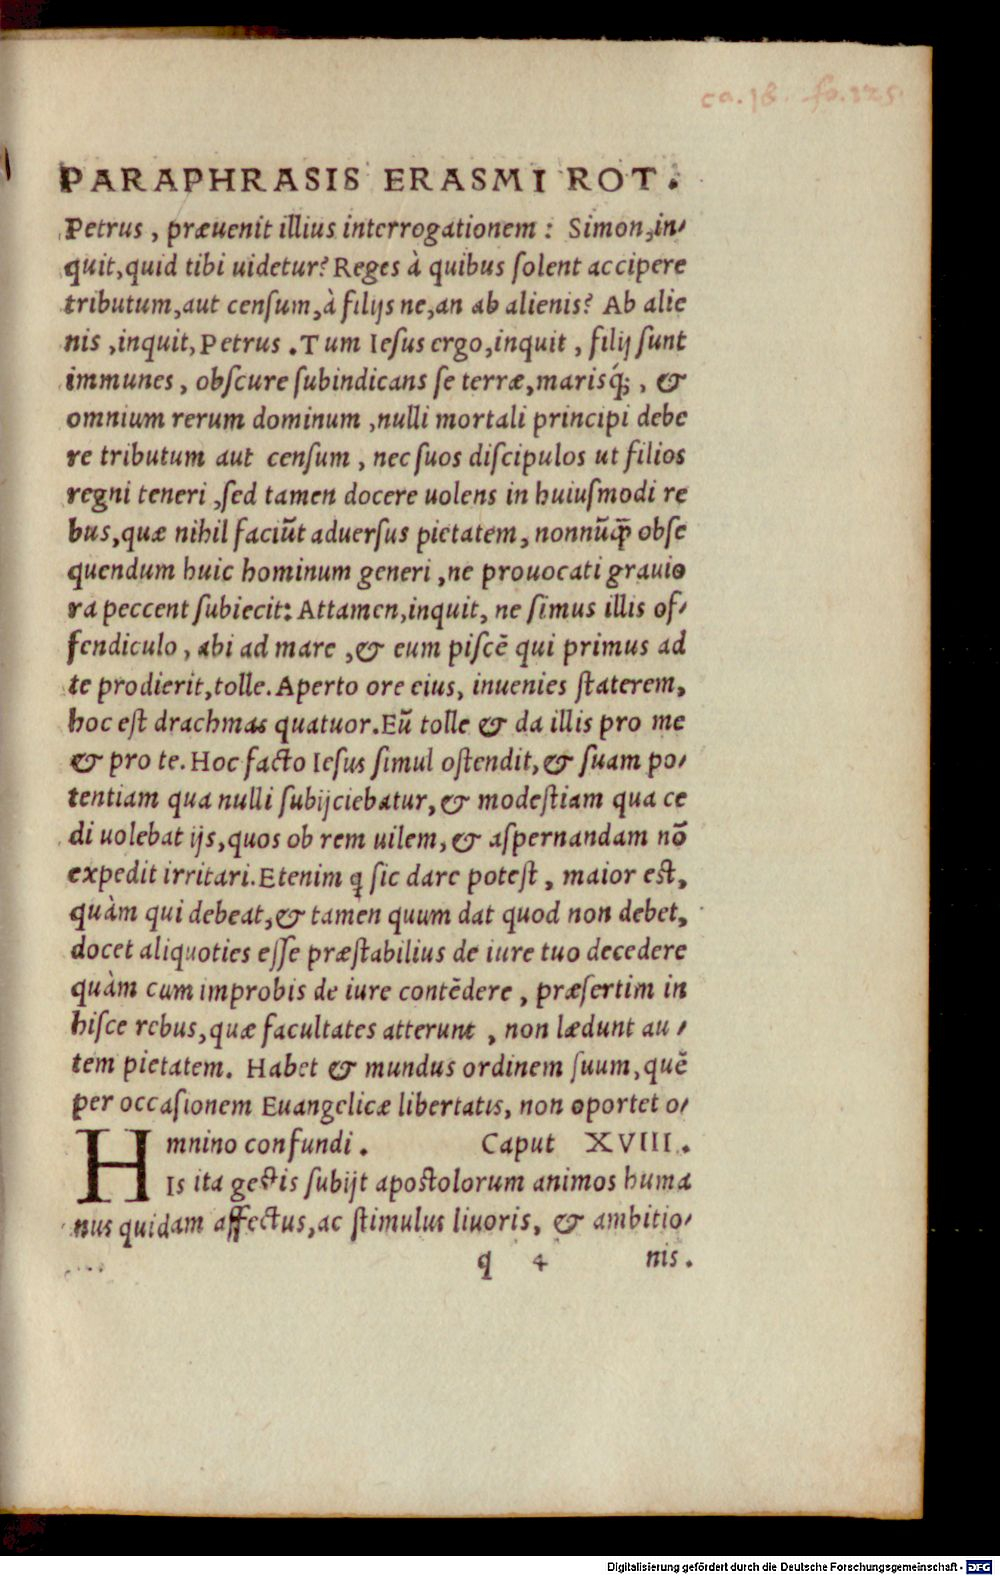 ca. 18. fo. 125.
PARAPHRASIS ERASMI ROT.
Petrus, præuenit illius interrogationem: Simon, in⸗
quit, quid tibi uidetur? Reges à quibus ſolent accipere
tributum, aut cenſum, à filijs ne, an ab alienis? Ab alie
nis, inquit, Petrus. Tum Ieſus ergo, inquit, filij ſunt
immunes, obſcure ſubindicans ſe terræ, marisq́;, &
omnium rerum dominum, nulli mortali principi debe
re tributum aut cenſum, nec ſuos diſcipulos ut filios
regni teneri, ſed tamen docere uolens in huiuſmodi re
bus, quæ nihil faciũt aduerſus pietatem, nonnũq̃ obſe
quendum huic hominum generi, ne prouocati grauio
ra peccent ſubiecit: Attamen, inquit, ne ſimus illis of⸗
fendiculo, abi ad mare, & eum piſcẽ qui primus ad
te prodierit, tolle. Aperto ore eius, inuenies ſtaterem,
hoc eſt drachmas quatuor. Eũ tolle & da illis pro me
& pro te. Hoc facto Ieſus ſimul oſtendit, & ſuam po⸗
tentiam qua nulli ſubijciebatur, & modeſtiam qua ce
di uolebat ijs, quos ob rem uilem, & aſpernandam nõ
expedit irritari. Etenim q ſic dare poteſt, maior eſt,
quàm qui debeat, & tamen quum dat quod non debet,
docet aliquoties eſſe præſtabilius de iure tuo decedere
quàm cum improbis de iure contẽdere, præſertim in
hiſce rebus, quæ facultates atterunt, non lædunt au⸗
tem pietatem. Habet & mundus ordinem ſuum, quẽ
per occaſionem Euangelicæ libertatis, non oportet o⸗
mnino confundi. Caput XVIII.
HIs ita geſtis ſubijt apoſtolorum animos huma
nus quidam affectus, ac ſtimulus liuoris, & ambitio⸗
q 4 nis.
Digitalisierung gefördert durch die Deutsche Forschungsgemeinschaft - DFG